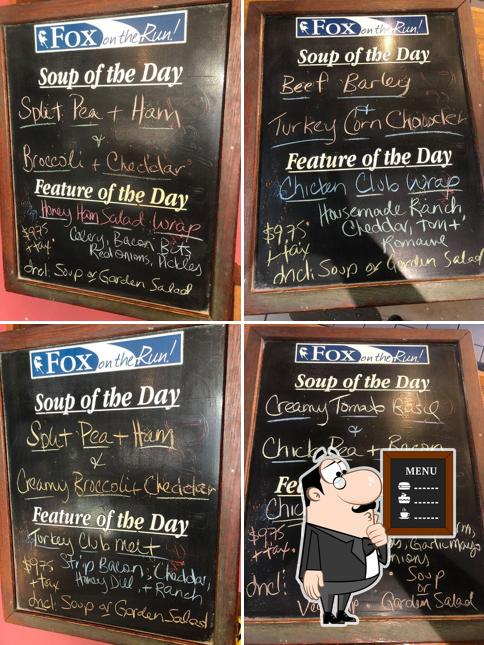 Fox on the Run!
Soup of the Day
Split Pea + Ham
&
Broccoli + Cheddar
Feature of the Day
Honey Ham Salad Wrap
$9.75 Celery, Bacon Bits
+ tax Red Onions, Pickles
Incl: Soup or Garden Salad
Fox on the Run!
Soup of the Day
Beef Barley
&
Turkey Corn Chowder
Feature of the Day
Chicken Club Wrap
Housemade Ranch
$9.75 Cheddar, Tom +
+ tax Romaine
Incl: Soup or Garden Salad
Fox on the Run!
Soup of the Day
Split Pea + Ham
&
Creamy Broccoli + Cheddar
Feature of the Day
Turkey Club Melt
$9.75 Strip Bacon, Cheddar,
+ tax Honey Dill, + Ranch
Incl: Soup or Garden Salad
Fox on the Run!
Soup of the Day
Creamy Tomato Basil
&
Pea + Bacon
MENU
$9.75
+ tax. Garlic Mayo
Incl: Soup
or
Garden Salad